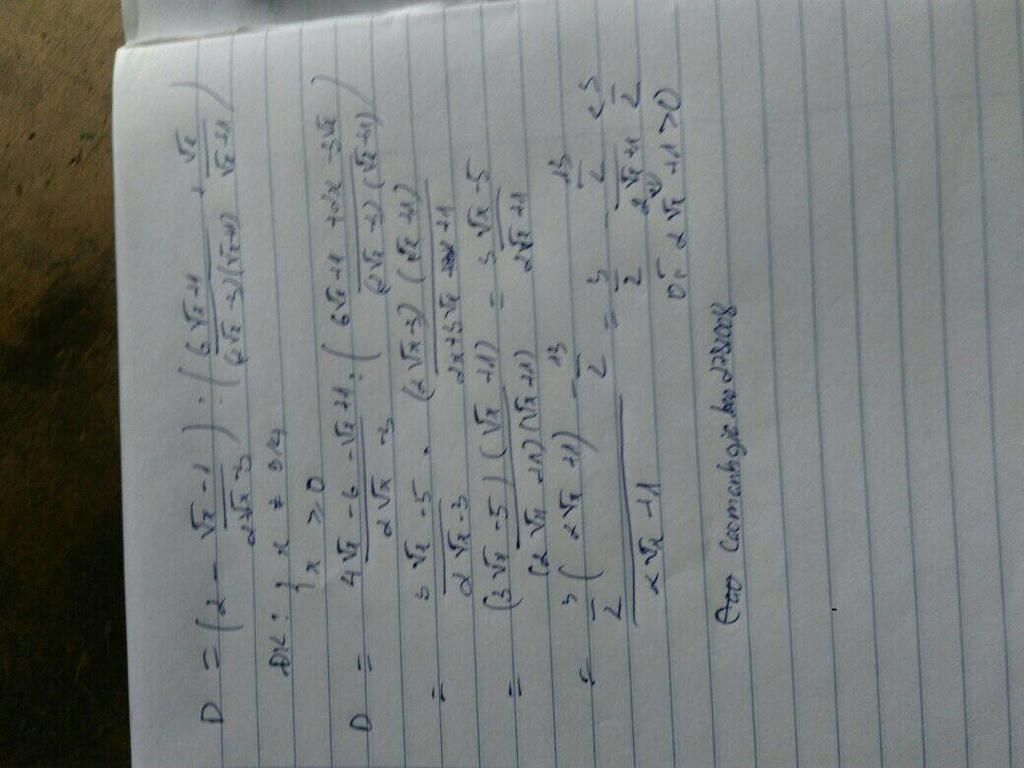 D = (2 - (√x - 1)/(2√x - 3)) : ((6√x + 1)/((2√x - 3)(√x + 1)) + √x/(√x + 1))
ĐK: { x ≠ 9/4
x ≥ 0
D = (4√x - 6 - √x + 1)/(2√x - 3) : ((6√x + 1 + 2x - 3√x)/((2√x - 3)(√x + 1)))
= (3√x - 5)/(2√x - 3) . ((2√x - 3)(√x + 1))/(2x + 3√x + 1)
= ((3√x - 5)(√x + 1))/((2√x + 1)(√x + 1)) = (3√x - 5)/(2√x + 1)
= (3/2(2√x + 1) - 13/2)/(2√x + 1) = 3/2 - (13/2)/(2√x + 1) < 3/2
2√x + 1 > 0